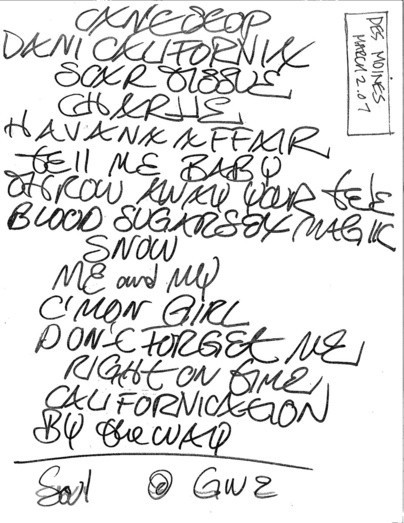 CANT STOP
DANI CALIFORNIA
SCAR TISSUE
CHARLIE
HAVANA AFFAIR
TELL ME BABY
THROW AWAY YOUR TELE
BLOOD SUGAR SEX MAGIK
SNOW
ME and MY
C'MON GIRL
DON'T FORGET ME
RIGHT ON TIME
CALIFORNICATION
BY the WAY
Soul GIVE
DES MOINES
MARCH 2.07